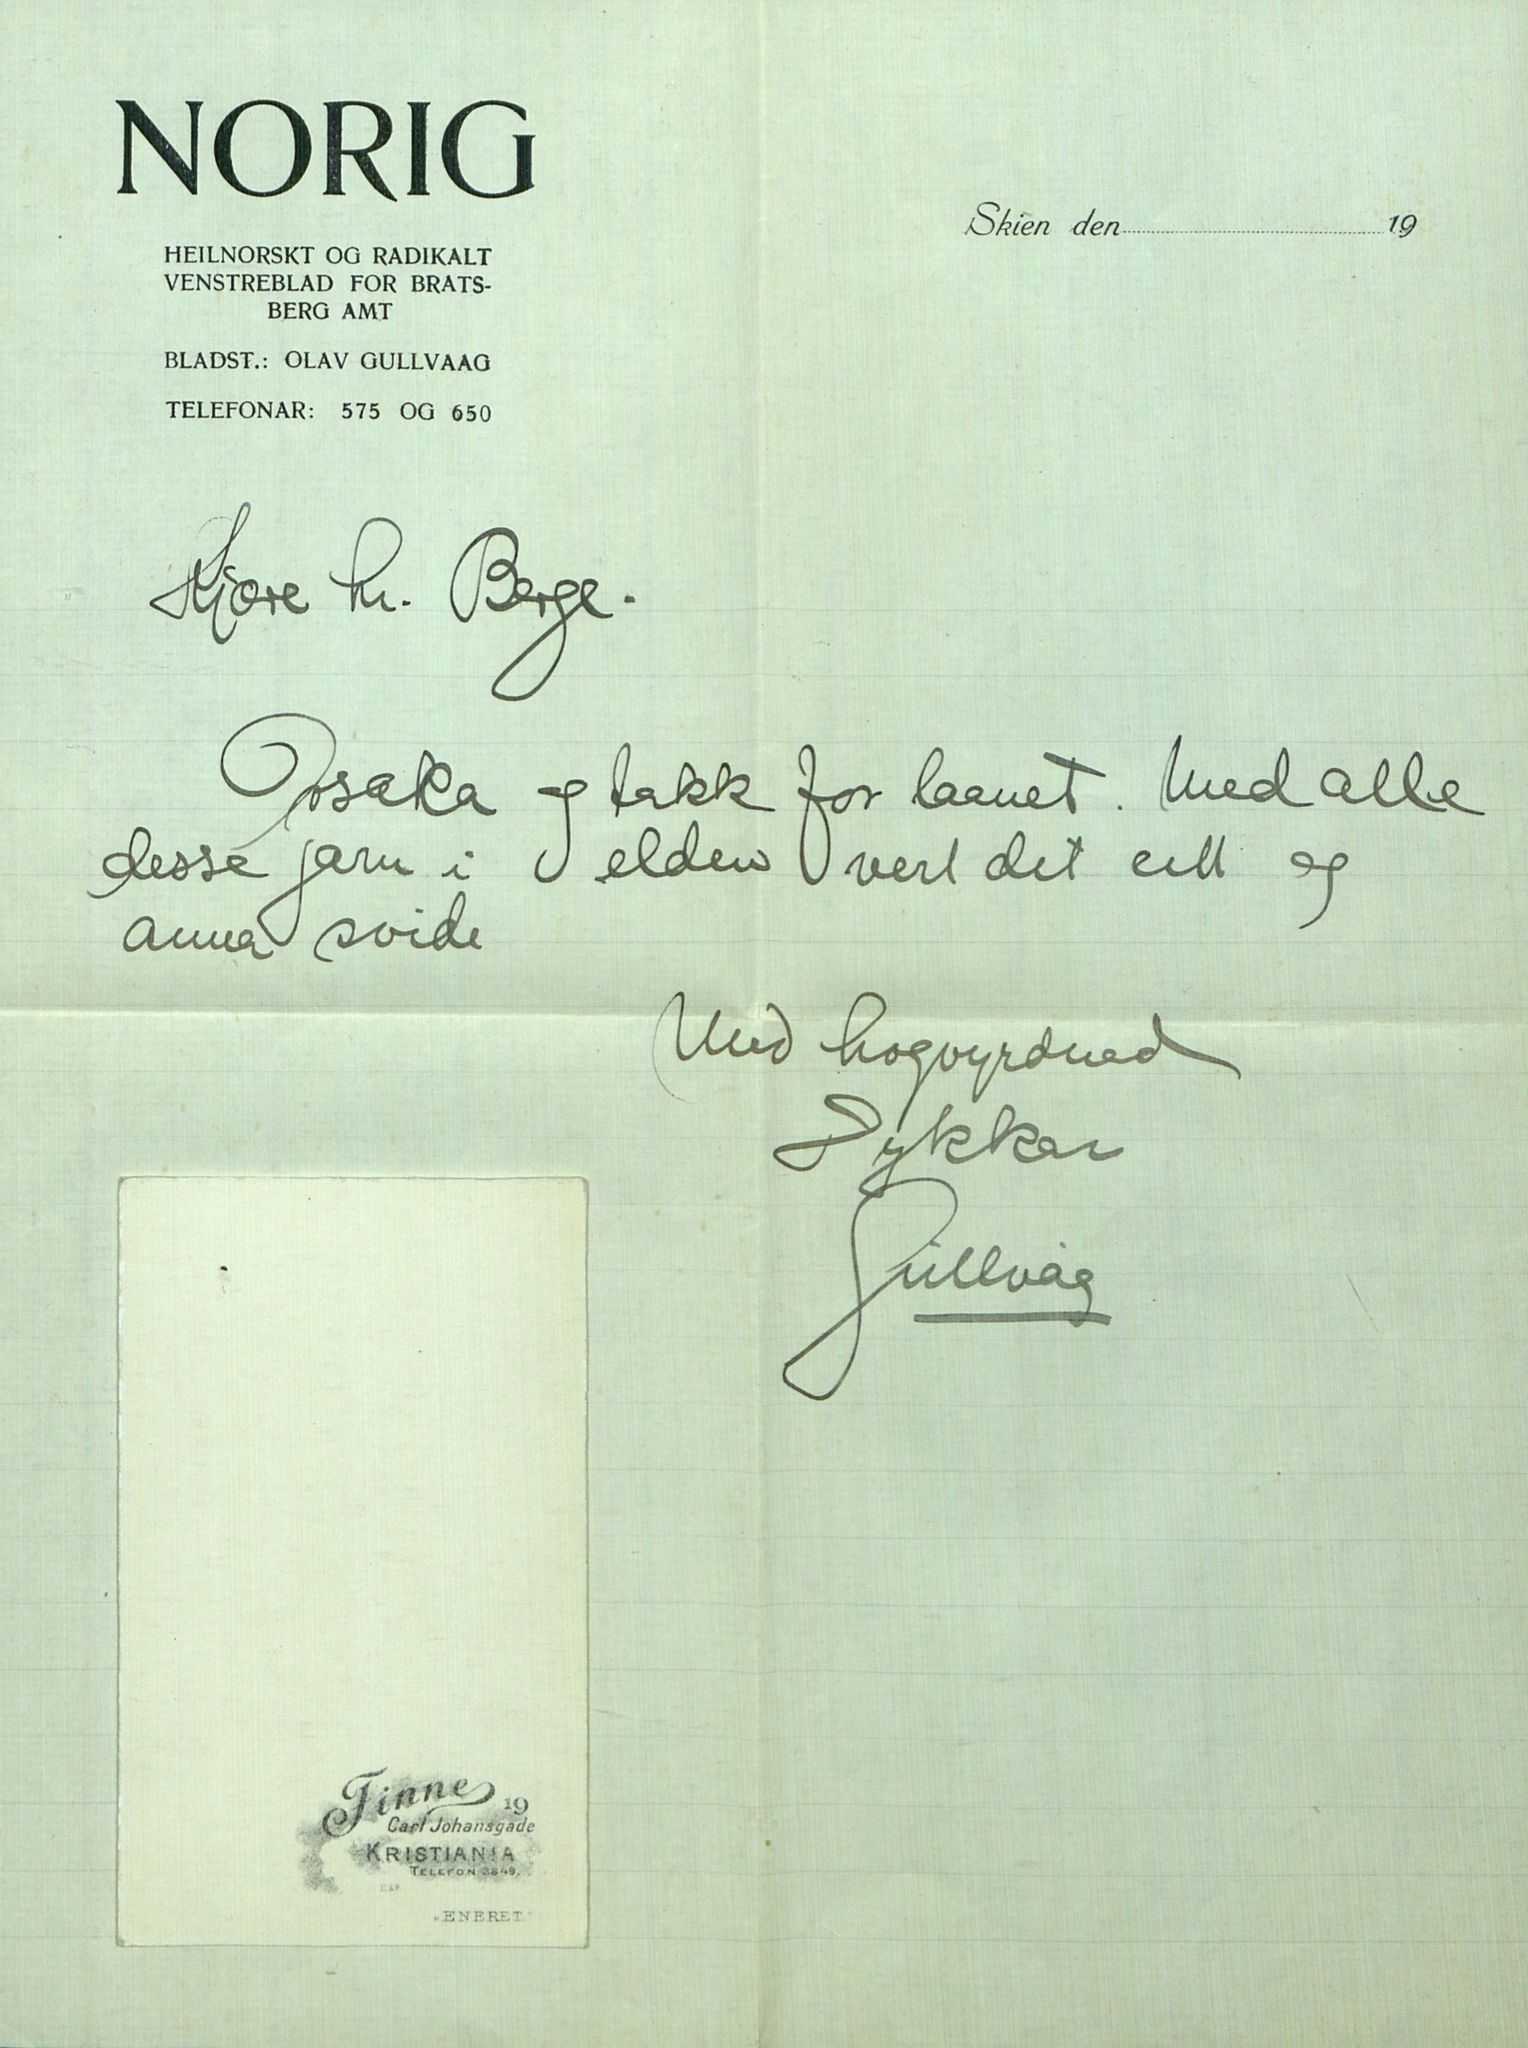 NORIG
HEILNORSKT OG RADIKALT
VENSTREBLAD FOR BRATS-
BERG AMT
BLADST.: OLAV GULLVAAG
TELEFONAR: 575 OG 650
Skien den 19
Kjære hr. Berge.
Orsaka og takk for laanet. Med alle
desse jarn i elden vert det eitt og
anna svide
Med høgvyrdnad
Dykkar
Gullvåg
Finne
19
Carl Johansgade
KRISTIANIA
TELEFON 3849.
"ENERET"